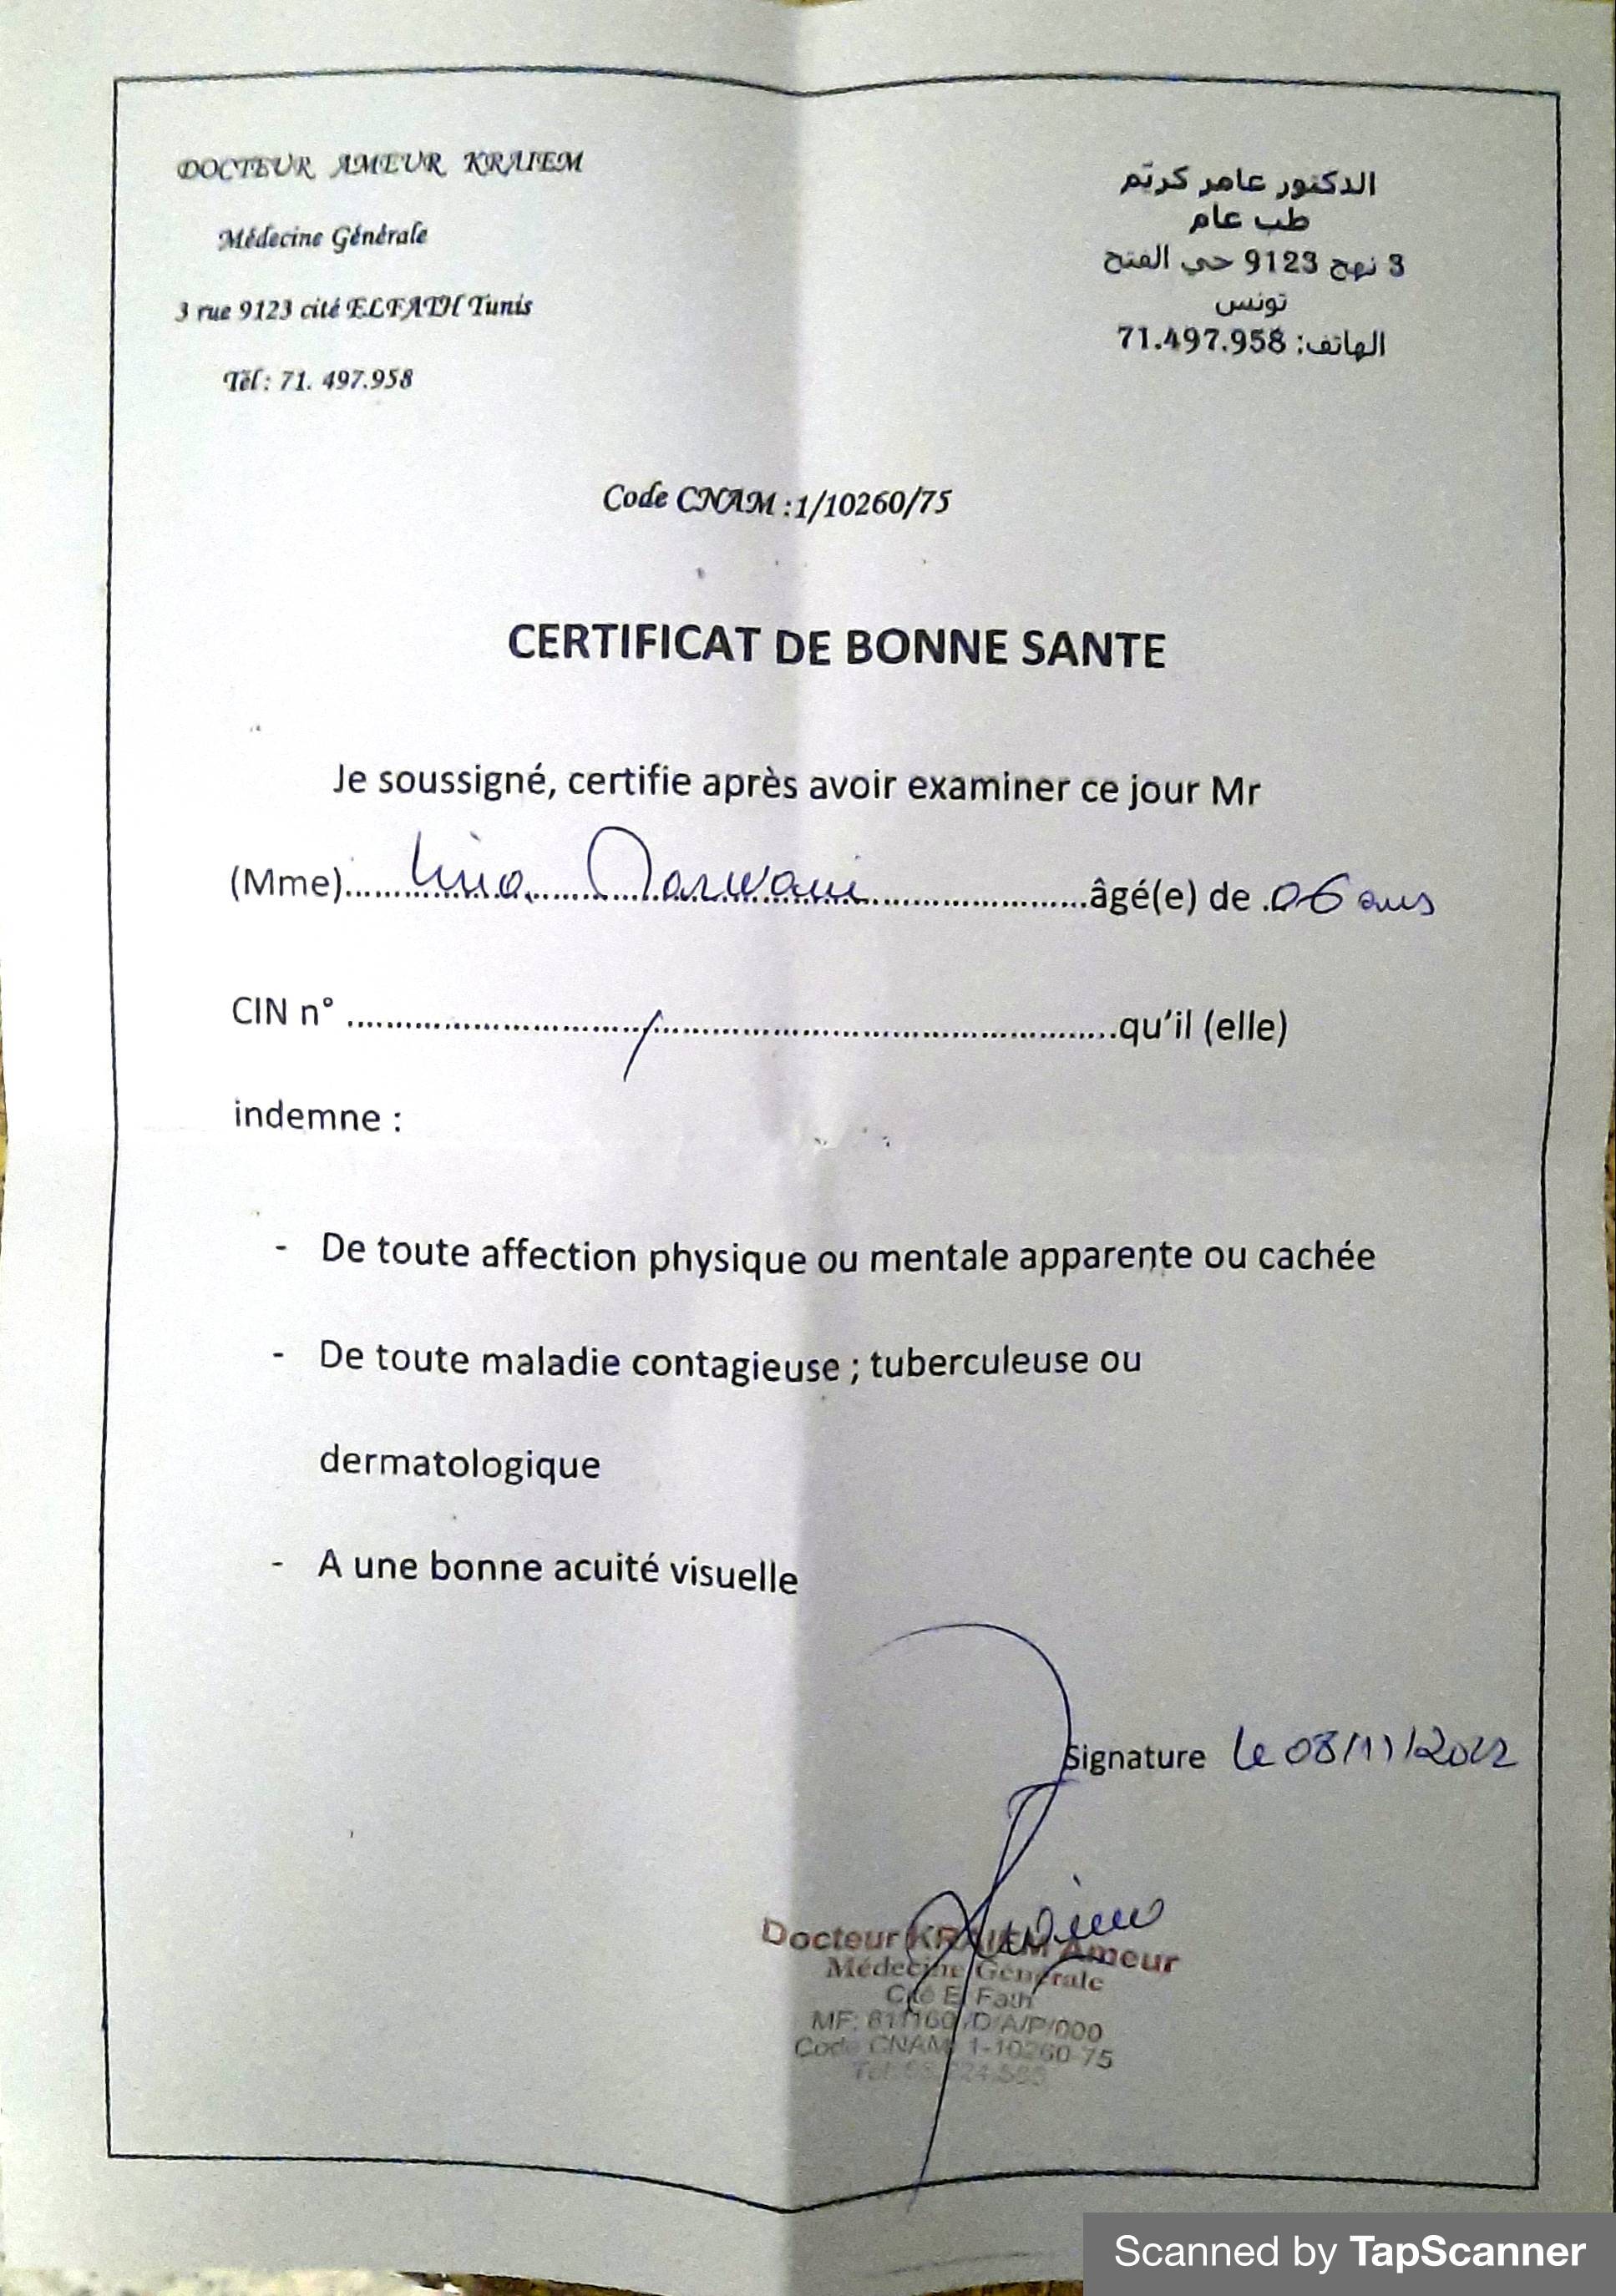 DOCTEUR AMEUR KRAIEM
Médecine Générale
3 rue 9123 cité ELFATH Tunis
Tél : 71. 497.958
الدكتور عامر كريّم
طب عام
3 نهج 9123 حي الفتح
تونس
الهاتف: 71.497.958
Code CNAM :1/10260/75
CERTIFICAT DE BONNE SANTE
Je soussigné, certifie après avoir examiner ce jour Mr
(Mme).... Lina Marwani ....âgé(e) de .06 ans
CIN n° ....../......qu'il (elle)
indemne :
- De toute affection physique ou mentale apparente ou cachée
- De toute maladie contagieuse ; tuberculeuse ou
dermatologique
- A une bonne acuité visuelle
Signature le 08/11/2022
Docteur KRAIEM Ameur
Médecine Générale
Cité El Fath
Code CNAM 1-10260-75
Scanned by TapScanner